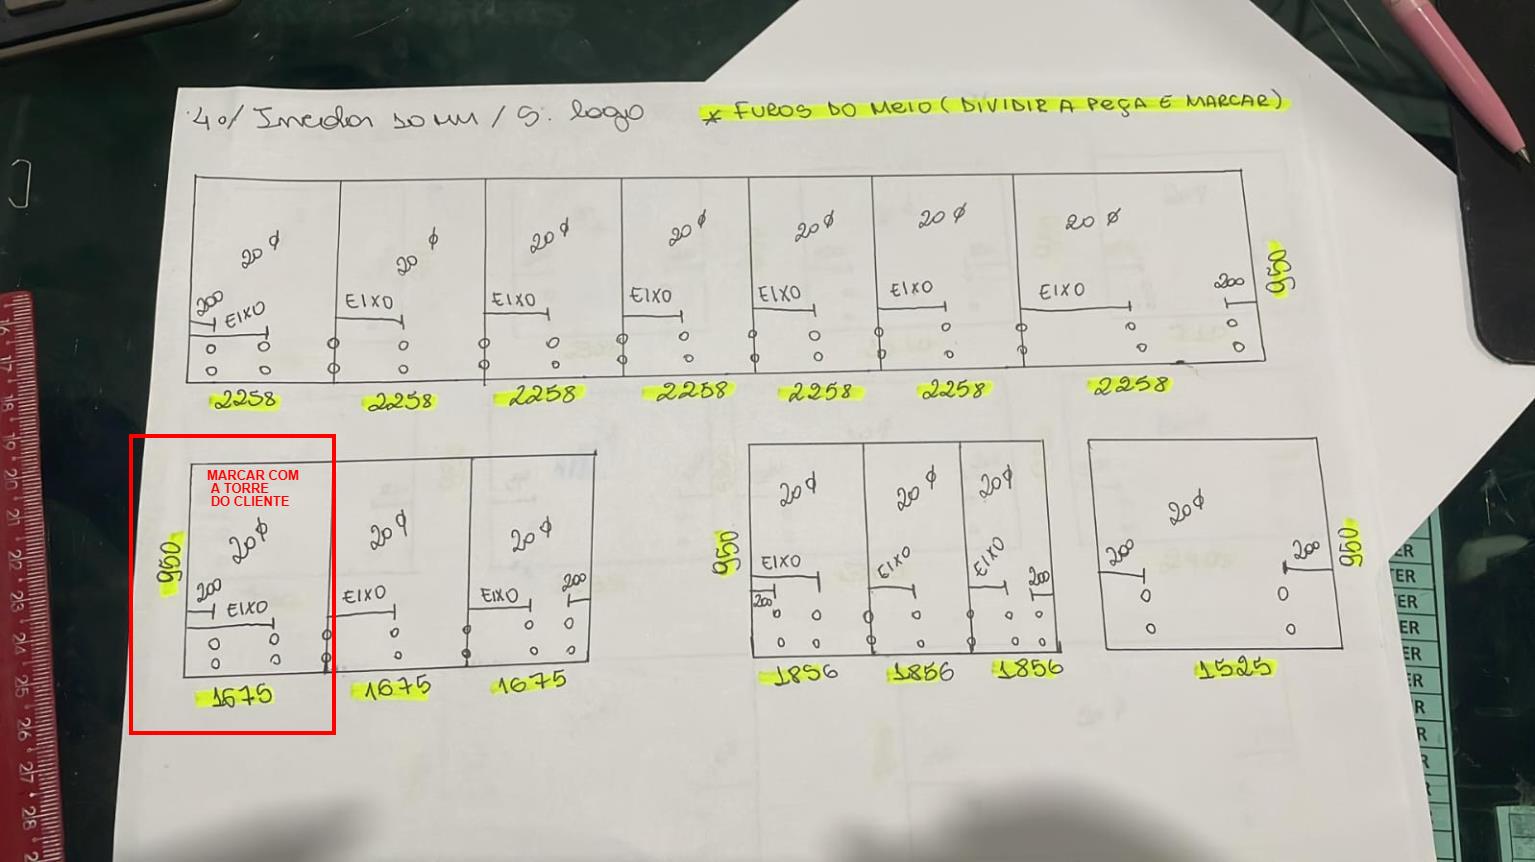 4o/ Incolor 10 MM / S. logo
* FUROS DO MEIO (DIVIDIR A PEÇA E MARCAR)
20 ϕ
20 ϕ
20 ϕ
20 ϕ
20 ϕ
20 ϕ
20 ϕ
200
EIXO
EIXO
EIXO
EIXO
EIXO
EIXO
EIXO
200
950
2258
2258
2258
2258
2258
2258
2258
MARCAR COM
A TORRE
DO CLIENTE
20 ϕ
20 ϕ
20 ϕ
950
200
EIXO
EIXO
EIXO
200
1675
1675
1675
20 ϕ
20 ϕ
20 ϕ
950
EIXO
200
EIXO
EIXO
200
1856
1856
1856
20 ϕ
200
200
950
1525
16
17
18
19
20
21
22
23
24
25
26
27
28
ER
TER
ER
ER
ER
ER
R
R
R